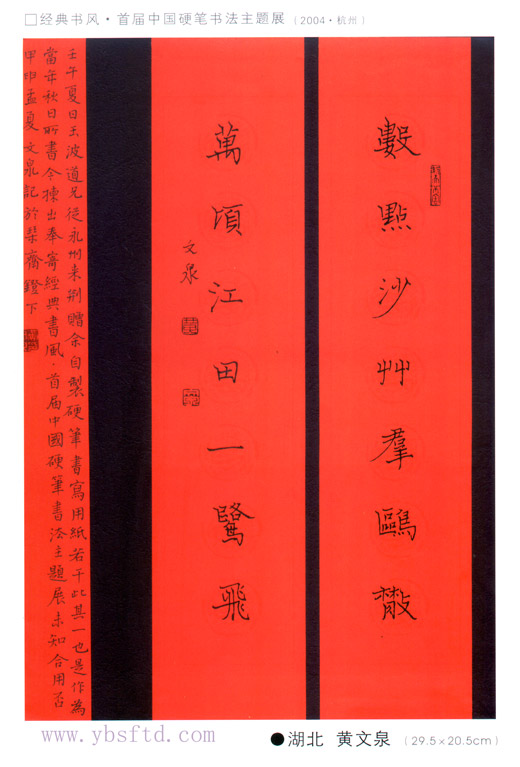 □经典书风·首届中国硬笔书法主题展（2004·杭州）
數點沙艸羣鷗散
萬頃江田一鷺飛
文泉
壬午夏日王波道兄從永州来荆贈余自製硬筆書寫用紙若干此其一也是作為
當年秋日所書今揀出奉寄經典書風·首届中國硬筆書法主題展未知合用否
甲申孟夏文泉記於琹齋鐙下
www.ybsftd.com
●湖北 黄文泉（29.5×20.5cm）